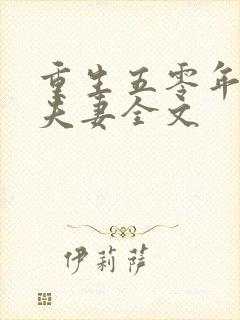 重生五零年
夫妻全文
伊莉萨